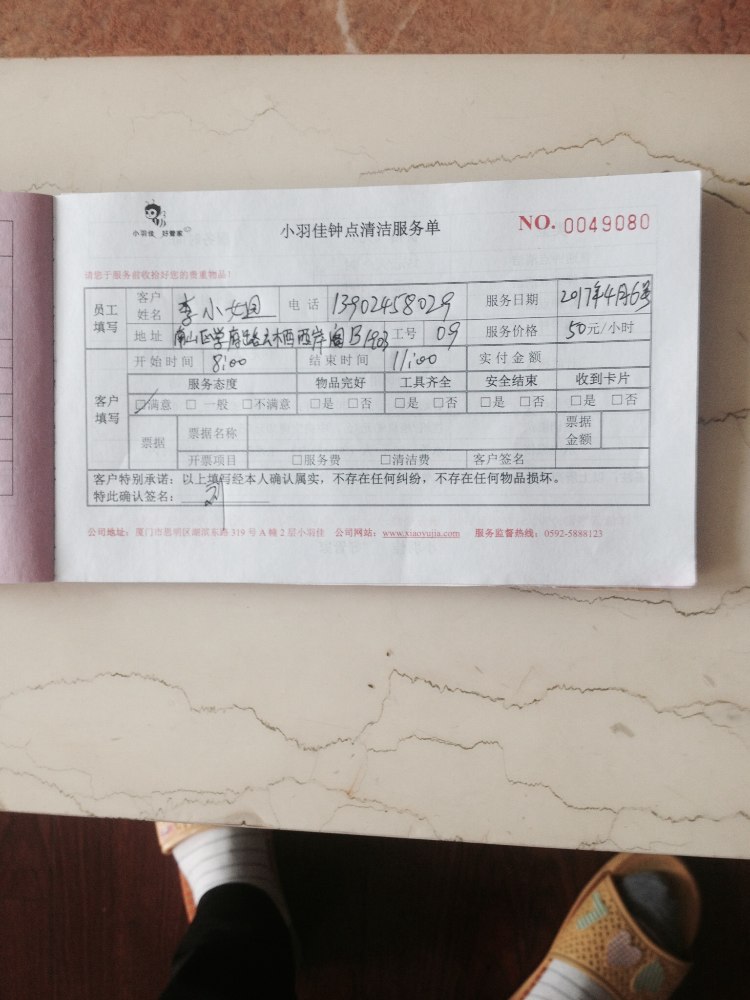 小羽佳 好管家
小羽佳钟点清洁服务单
NO. 0049080
请您于服务前收检好您的贵重物品!
员工填写 客户姓名 李小姐 电话 13902458029 服务日期 2017年4月6号
地址 南山区学府路 西岸阁B1903 工号 09 服务价格 50元/小时
客户填写 开始时间 8:00 结束时间 11:00 实付金额
服务态度 物品完好 工具齐全 安全结束 收到卡片
☑满意 □一般 □不满意 □是 □否 □是 □否 □是 □否 □是 □否
票据 票据名称 票据金额
开票项目 □服务费 □清洁费 客户签名
客户特别承诺:以上填写经本人确认属实,不存在任何纠纷,不存在任何物品损坏。
特此确认签名: 刘
公司地址:厦门市思明区湖滨东路319号A幢2层小羽佳 公司网站:www.xiaoyujia.com 服务监督热线:0592-5888123